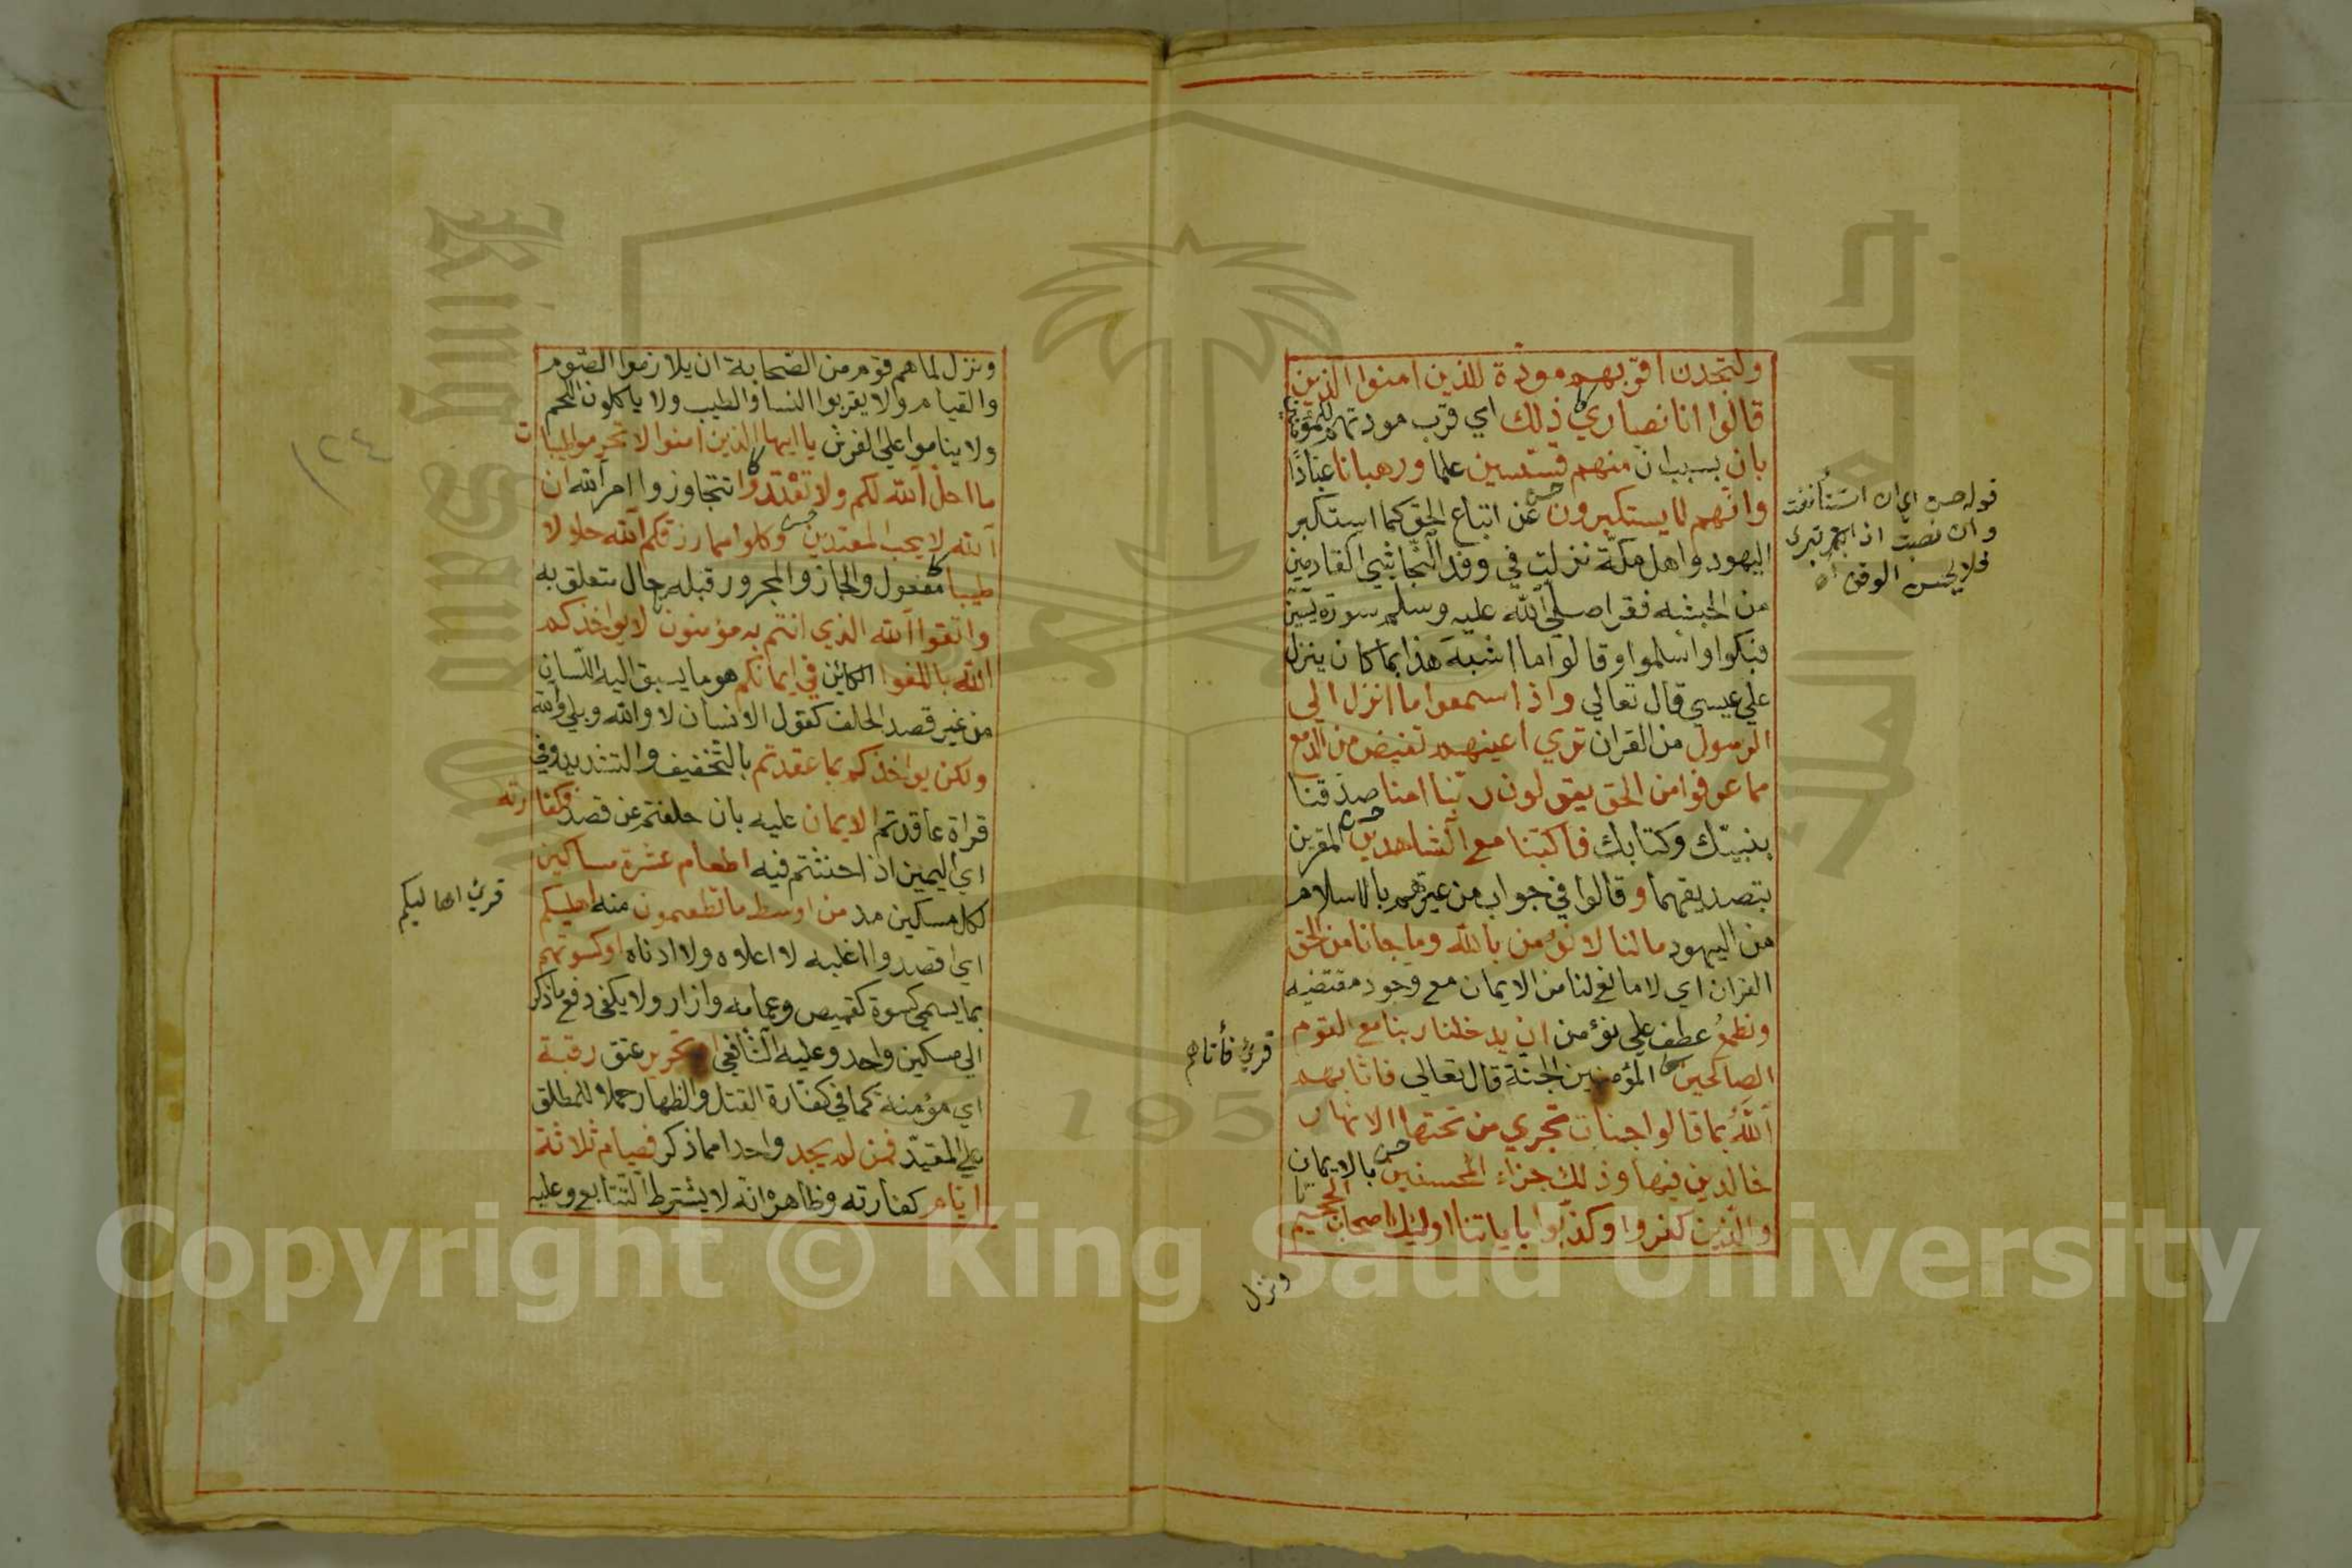 ولتجدن اقربهم مودة للذين امنوا الذين
قالوا انا نصاري ذلك اي قرب مودتهم للمؤمنين
بان بسبب ان منهم قسيسين علما ورهبانا عبادًا
وانهم لا يستكبرون عن اتباع الحق كما استكبر
اليهود واهل مكة نزلت في وفد النجاشي القادمين
من الحبشه فقرا صلي الله عليه وسلم سورة يس
فبكوا واسلموا وقالوا ما اشبه هذا بما كان ينزل
علي عيسي قال تعالي واذا سمعوا ما انزل الي
الرسول من القران تري اعينهم تفيض من الدمع
مما عرفوا من الحق يقولون ربنا امنا صدقنا
بنبيك وكتابك فاكتبنا مع الشاهدين المقرين
بتصديقهما وقالوا في جواب من عيرهم بالاسلام
من اليهود ما لنا لا نؤمن بالله وما جانا من الحق
القران اي لا مانع لنا من الايمان مع وجود مقتضيه
ونطمع عطف علي نؤمن ان يدخلنا ربنا مع القوم
الصالحين المؤمنين الجنة قال تعالي فاثابهم
الله بما قالوا جنات تجري من تحتها الانهار
خالدين فيها وذلك جزاء المحسنين بالايمان
والذين كفروا وكذبوا باياتنا اوليك اصحاب الجحيم
ونزل
قوله حسن اي ان استأنفت
وان نصبت
فلا يحسن الوقف
قرئ فأتاهم
ونزل لما هم قوم من الصحابة ان يلازموا الصوم
والقيام ولا يقربوا النسا والطيب ولا ياكلون اللحم
ولا يناموا علي الفرش يا ايها الذين امنوا لا تحرموا طيبات
ما احل الله لكم ولا تعتدوا تتجاوزوا امر الله ان
الله لا يحب المعتدين وكلوا مما رزقكم الله حلالا
طيبا مفعول والجار والمجرور قبله حال متعلق به
واتقوا الله الذي انتم به مؤمنون لا يواخذكم
الله باللغوا الكائن في ايمانكم هو ما يسبق اليه اللسان
من غير قصد الحلف كقول الانسان لا والله وبلي والله
ولكن يواخذكم بما عقدتم بالتخفيف والتشديد وفي
قراة عاقدتم الايمان عليه بان حلفتم عن قصد فكفارته
اي اليمين اذا حنثتم فيه اطعام عشرة مساكين
لكل مسكين مد من اوسط ما تطعمون منه اهليكم
اي اقصد واغلبه لا اعلاه ولا ادناه او كسوتهم
بما يسمي كسوة كقميص وعمامه وازار ولا يكفي دفع ما ذكر
الي مسكين واحد وعليه الشافعي او تحرير عتق رقبة
اي مؤمنة كما في كفارة القتل والظهار حملا للمطلق
علي المقيد فمن لم يجد واحدا مما ذكر فصيام ثلاثة
ايام كفارته وظاهره انه لا يشترط التتابع وعليه
قرئ اهاليكم
١٢٤
King Saud University
1957
Copyright © King Saud University